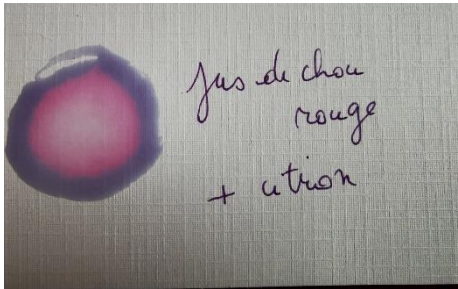 Jus de chou
rouge
+ citron